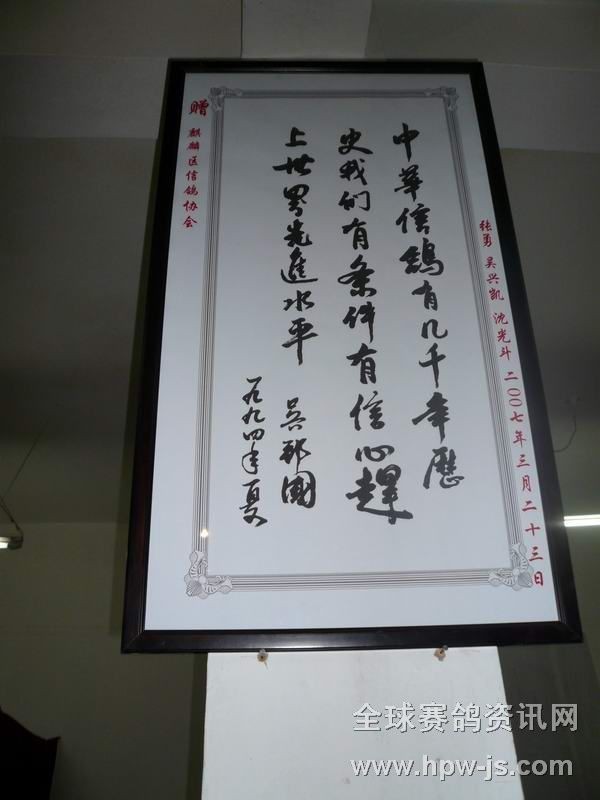 张勇 吴兴凯 沈光斗 二〇〇七年三月二十三日
中华信鸽有几千年歷
史我们有条件有信心趕
上世界先進水平
吴邦國
一九九四年夏
赠 麒麟区信鸽协会
全球赛鸽资讯网
www.hpw-js.com